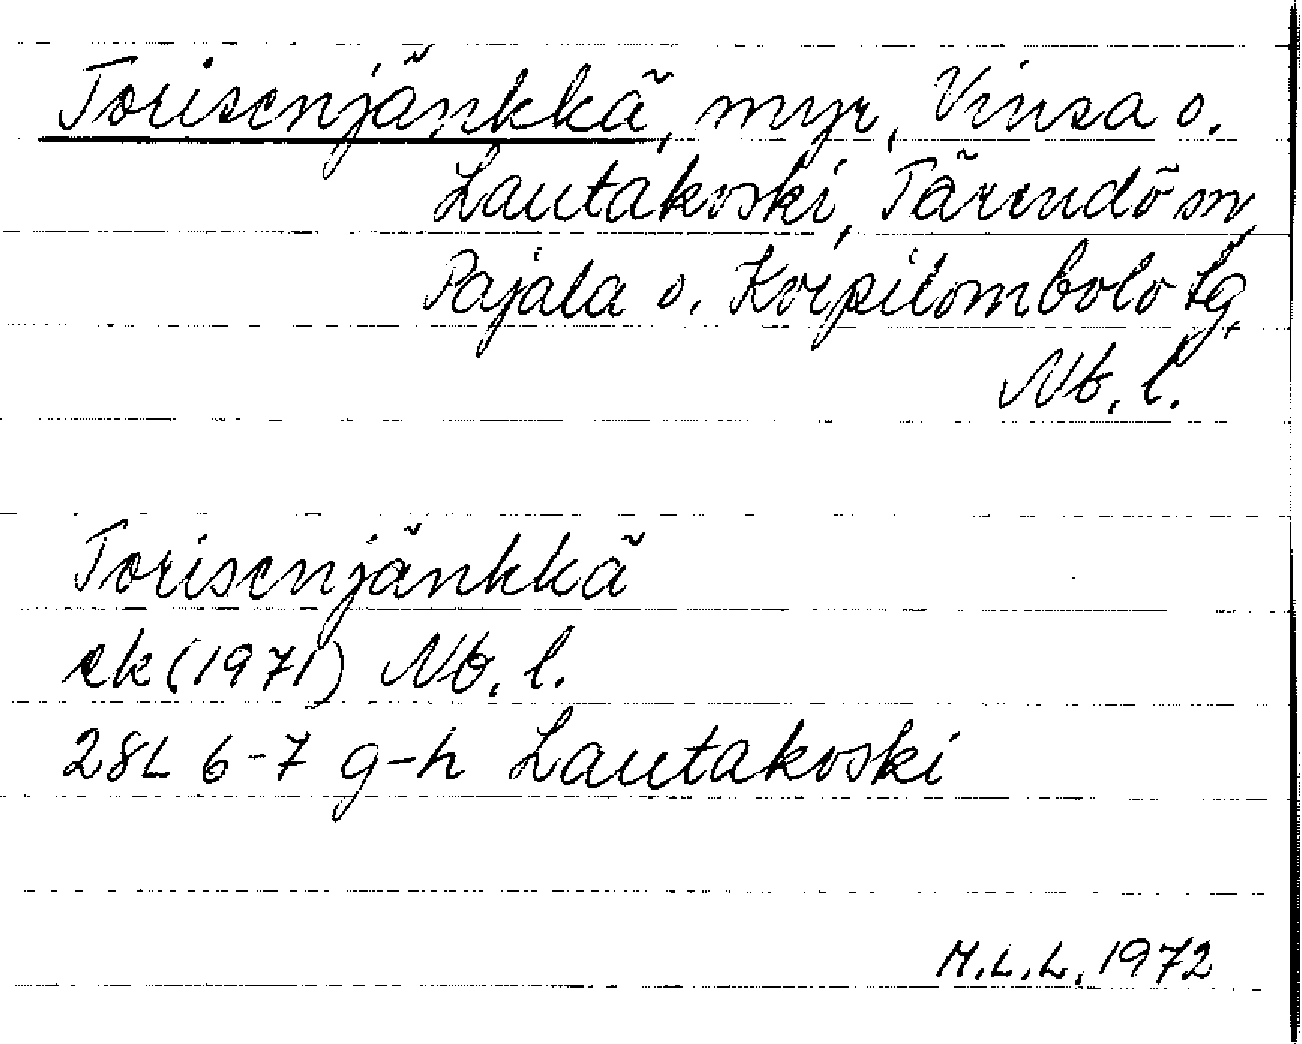 Torisenjänkkä, myr, Vinsa o.
Lautakoski, Tärendö sn,
Pajala o. Korpilombolo tg,
Nb. l.
Torisenjänkkä
ek (1971) Nb. l.
28L 6-7 g-h Lautakoski
M.L.L. 1972